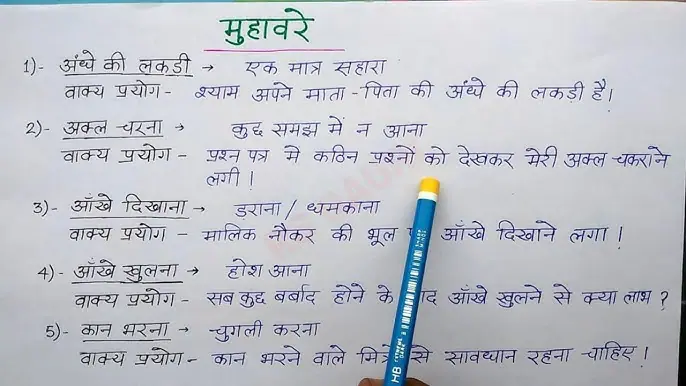 मुहावरे
1)- अंधे की लकडी → एक मात्र सहारा
वाक्य प्रयोग - श्याम अपने माता-पिता की अंधे की लकड़ी है।
2)- अक्ल चरना → कुछ समझ में न आना
वाक्य प्रयोग - प्रश्न पत्र मे कठिन प्रश्नों को देखकर मेरी अक्ल चकराने
लगी।
3)- आँखे दिखाना → डराना / धमकाना
वाक्य प्रयोग - मालिक नौकर की भूल आँखे दिखाने लगा!
4)- आँखे खुलना → होश आना
वाक्य प्रयोग - सब कुछ बर्बाद होने के आँखे खुलने से क्या लाभ?
5)- कान भरना → चुगली करना
वाक्य प्रयोग - कान भरने वाले से सावधान रहना चाहिए!
HB